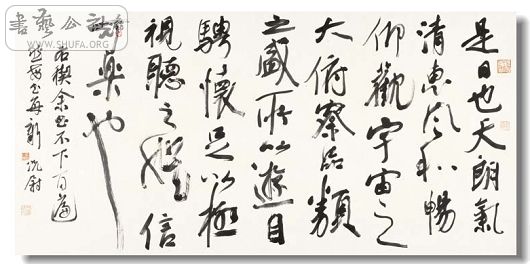 是日也天朗氣
清惠風和暢
仰觀宇宙之
大俯察品類
之盛所以遊目
騁懷足以極
視聽之娛信
可樂也
右禊余書不下百篇
然每書每新
WWW.SHUFA.ORG